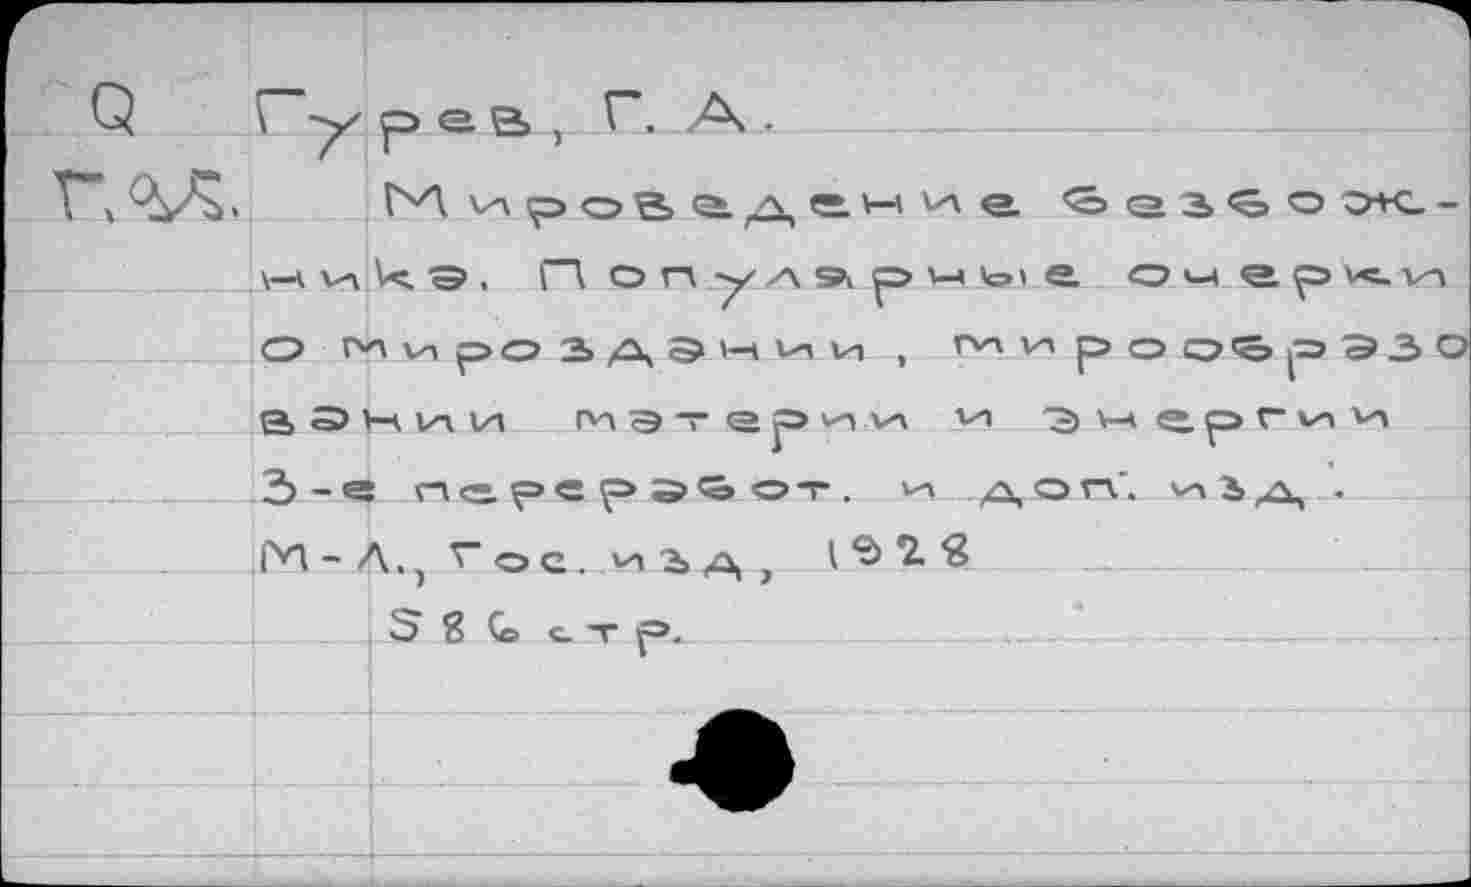 Q Гурев, Г. А.
Мироведение безбож-
ника. Популярные очерки
о мироздании, мирообразо
вании материи и энергии
3-е переработ. и доп. изд.
М-Л., Гос. изд, 1928
586 стр.